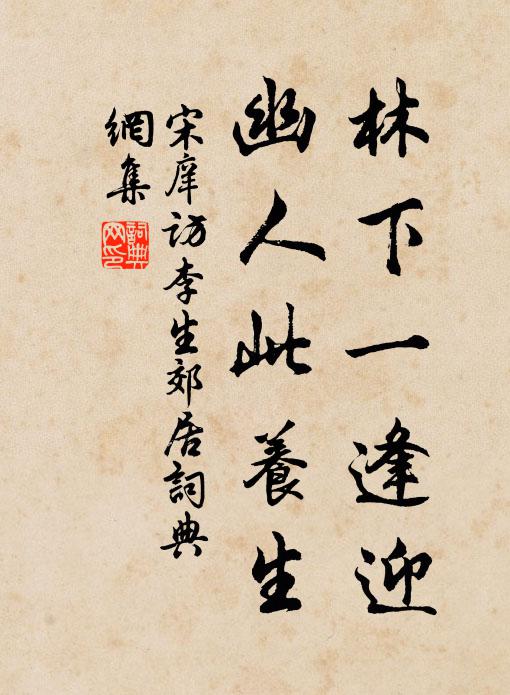 林下一逢迎
幽人此養生
宋庠访李生郊居詞典
網集
詞典
网印